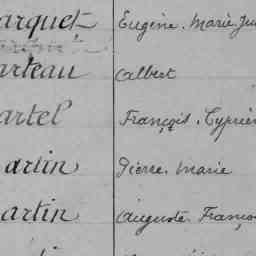 arquet Eugène. Marie Ju
arteau Albert
artel François. Cyprie
artin Pierre. Marie
artin Auguste. Franço